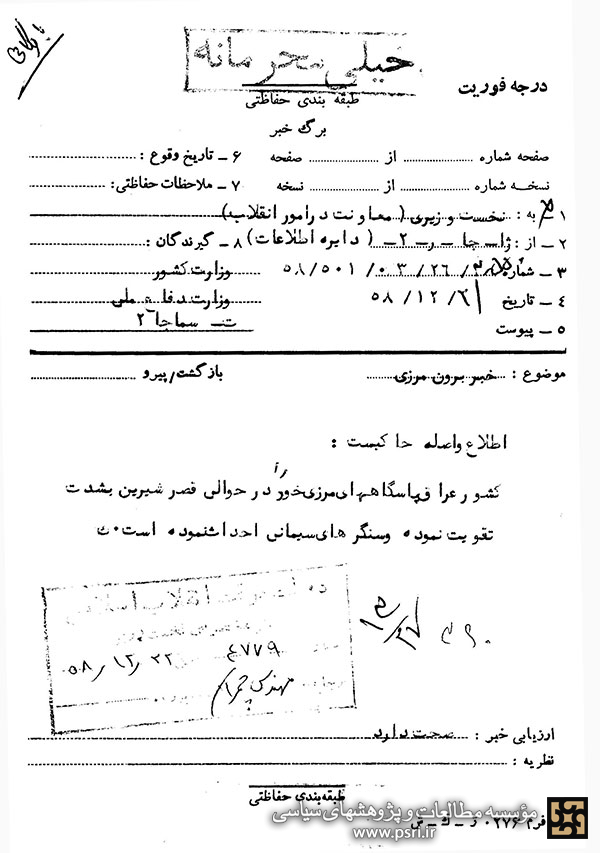 بایگانی
خیلی محرمانه
درجه فوریت
طبقه بندی حفاظتی
برگ خبر
صفحه شماره از صفحه
۶ - تاریخ وقوع :
نسخه شماره از نسخه
۷ - ملاحظات حفاظتی:
۱ - به : نخست وزیری (معاونت در امور انقلاب)
۲ - از: ژاـ جا ـ ر ـ ۲ ـ (دایره اطلاعات)
۸ - گیرندگان :
۳ - شماره ۵۸/۵۰۱/۰۳/۲۶/
وزارت کشور
۴ - تاریخ ۵۸/۱۲/۶
وزارت دفاع ملی
۵ - پیوست
ت ـ سماجا ۲
موضوع : خبر برون مرزی
بازگشت/پیرو
اطلاع واصله حاکیست :
کشور عراق پاسگاههای مرزی خود را در حوالی قصر شیرین بشدت
تقویت نموده و سنگرهای سیمانی احداث نموده است. ک
انقلاب اسلامی
۴۷۷۹
۵۸/۱۲/۲۲
مهندس چمران
ارزیابی خبر : صحت دارد
نظریه :
طبقه‌بندی حفاظتی
فرم ۰۲۷۶ و ـ ک ـ ص
مؤسسه مطالعات و پژوهشهای سیاسی
www.psri.ir